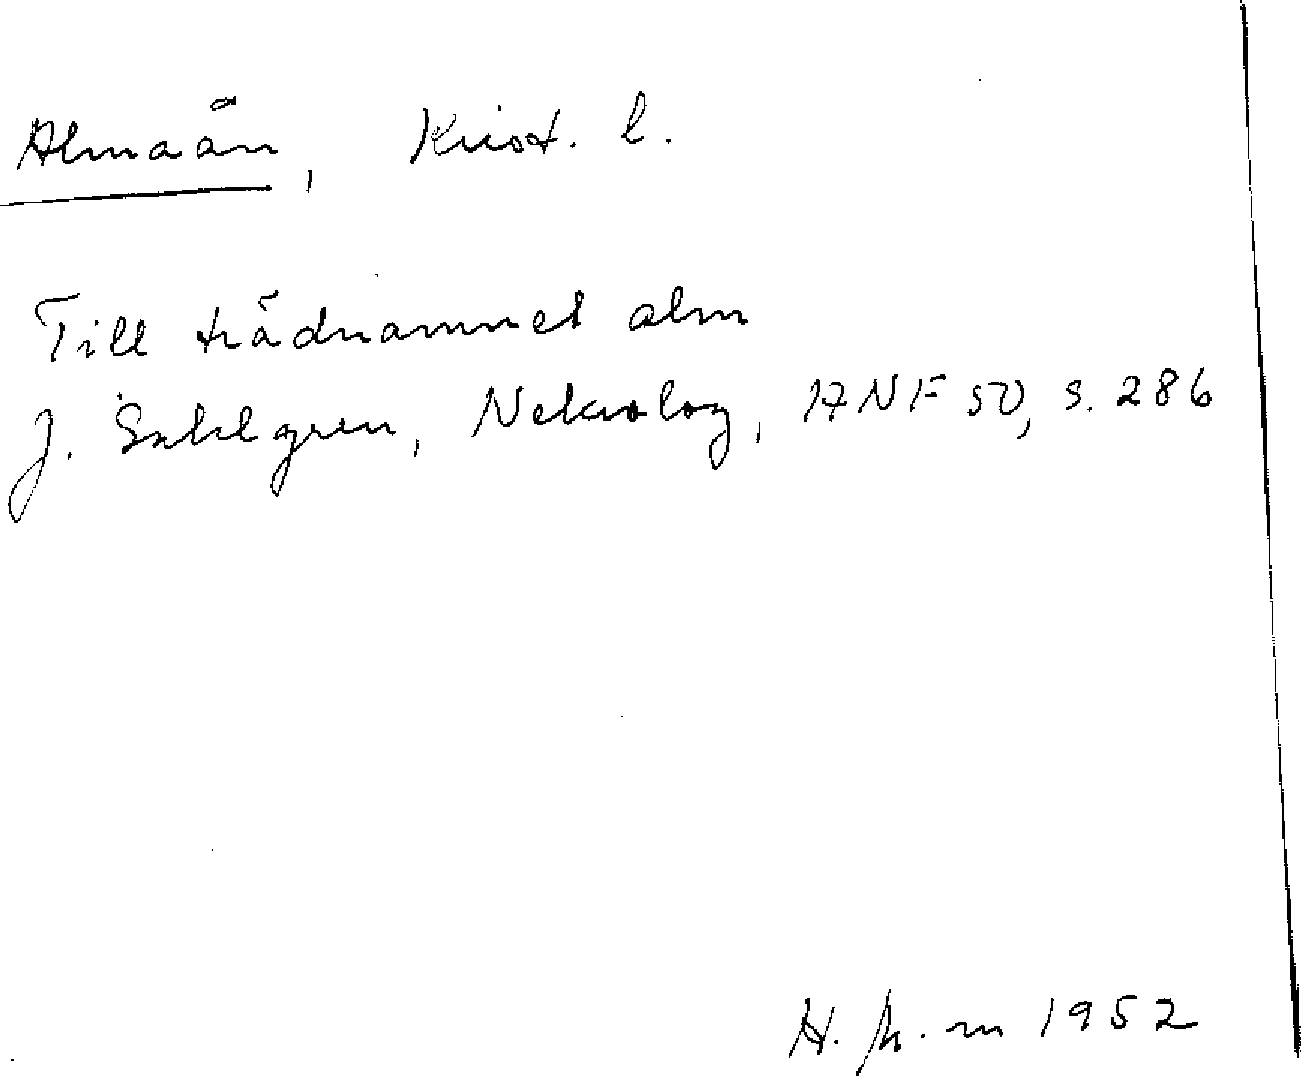 Almaån, Krist. l.
Till trädnamnet alm
J. Sahlgren, Nekrolog, ANF 50, s. 286
H. m 1952